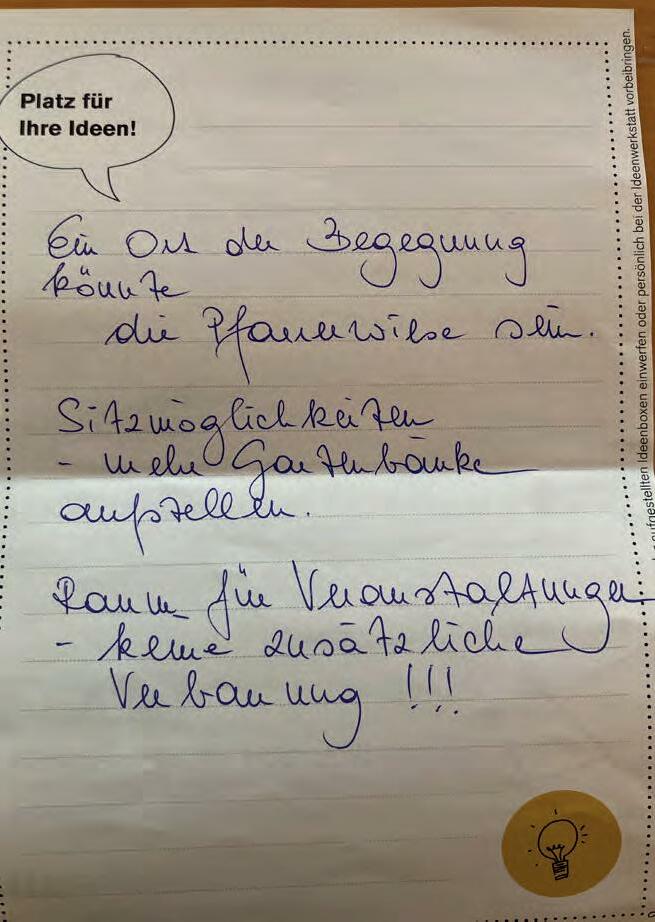 Platz für
Ihre Ideen!
Ein Ort der Begegnung
könnte
die Pfarrerwiese sein.
Sitzmöglichkeiten
- mehr Gartenbänke
aufstellen.
Raum für Veranstaltungen
- keine zusätzliche
Verbauung !!!
aufgestellten Ideenboxen einwerfen oder persönlich bei der Ideenwerkstatt vorbeibringen.